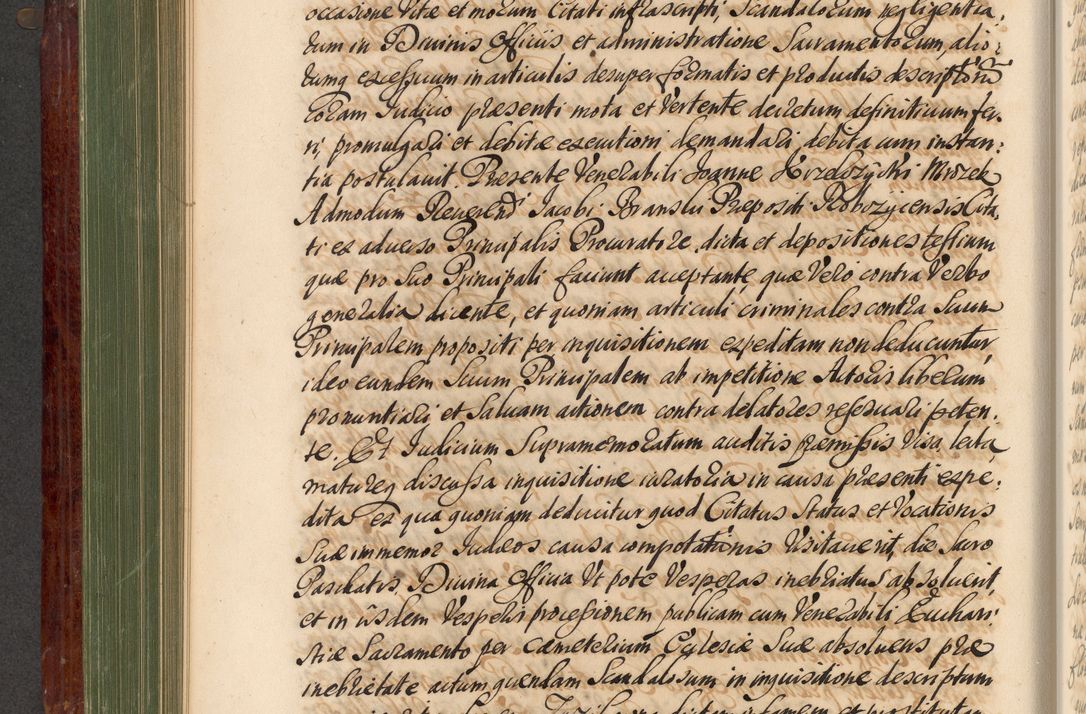 occasione Vitæ et morum Citati infrascripti, Scandalorum negligentia,
rum in Divinis Officiis et administratione Sacramentorum, alio:
rumq excessuum in articulis desuper formatis et productis descriptorũ
coram Judicio præsenti mota et Vertente decretum definitivum fer,
ri, promulgari et debitæ executioni demandari, debita cum instan:
tia postulavit. Præsente Venerabili Joanne Mrozek
Admodum Reverendi Jacobi Branski Præpositi Cita,
ti ex adverso Principalis Procuratore, dicta et depositiones testium
quæ pro Suo Principali faciunt acceptante, quæ Vero contra Verbo
generalia dicente, et quoniam articuli criminales contra Suum
Principalem propositi per inquisitionem expeditam non deducuntur,
ideo eundem Suum Principalem ab impetitione Actoris liberum
pronuntiari, et Salvam actionem contra delatores reservari peten:
te. Et Judicium Supramemoratum auditis præmissis Visa, lecta,
matureq discussa inquisitione iuratoria in causa præsenti expe:
dita ex qua quoniam deducitur quod Citatus Status et Vocationis
Suæ immemor Judæos causa compotationis Visitaverit, die Sacro
Paschatis Divina Officia Ut pote Vesperas inebriatus absolverit,
et in iisdem Vesperis processionem publicam cum Venerabili Euchari:
stiæ Sacramento per Cæmeterium Ecclesiæ Suæ absolvens præ
inebrietate actum quendam Scandalosum in inquisitione descriptum